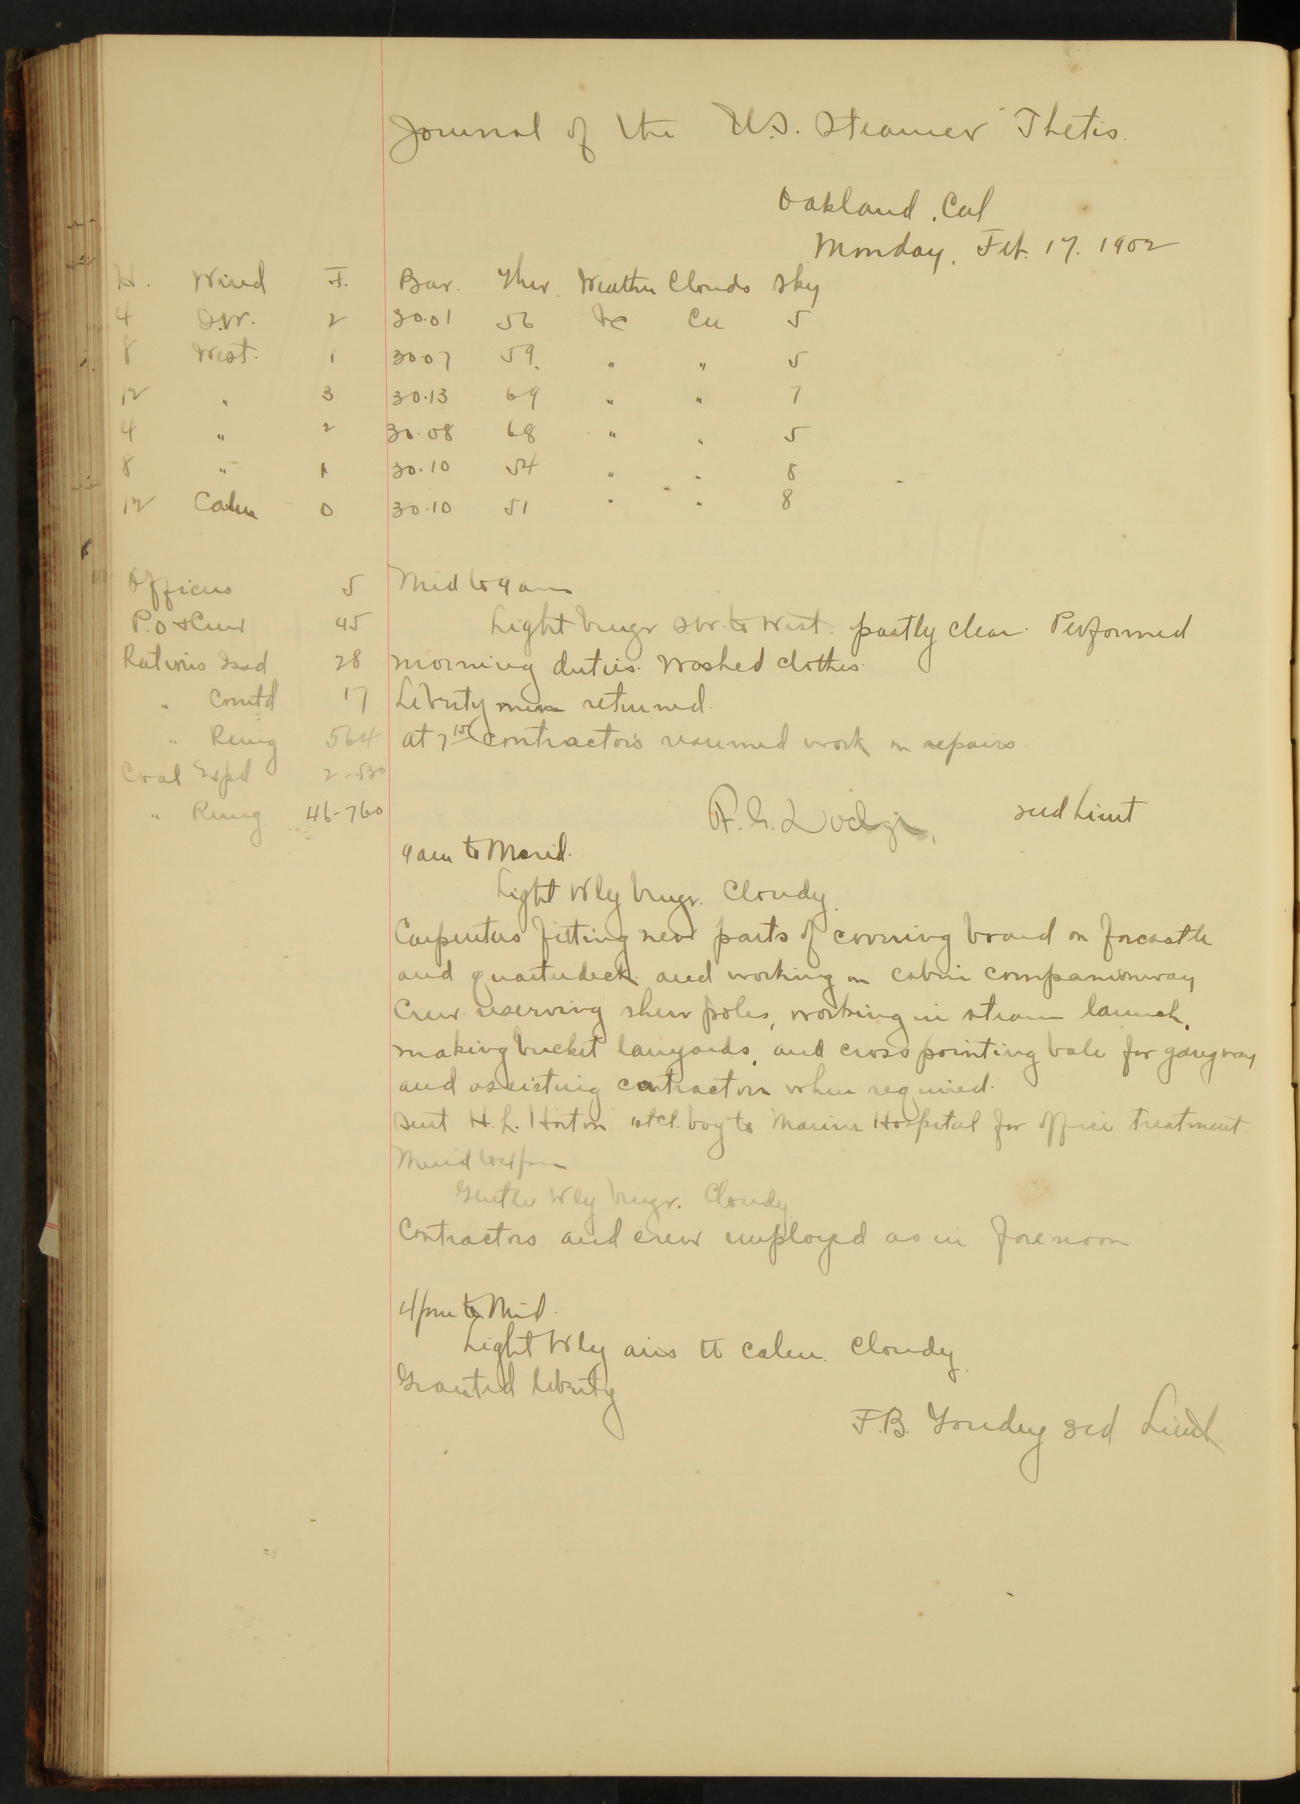 Journal of the U.S. Steamer Thetis.
Oakland, Cal
Monday, Feb. 17. 1902
H. Wind F. Bar. Ther. Weather Clouds Sky
4 S.W. 2 30.01 56 bc Cu 5
8 West. 1 30.07 59. " " 5
12 " 3 30.13 69 " " 7
4 " 2 30.08 68 " " 5
8 " 1 30.10 54 " " 8
12 Calm 0 30.10 51 " " 8
Officers 5
P.O & Crew 45
Rations Issd 28
" Comtd 17
" Reing 564
Coal Expd 2-530
" Reing 46-760
Mid to 9 am
Light brezs S.W. to West. partly clear. Performed
morning duties. Washed clothes.
Liberty men returned.
At 7 15 contractors resumed work on repairs.
F. G. Dodge, 2nd Lieut
9 am to Merid.
Light Wly brezs. Cloudy.
Carpenters fitting new parts of covering board on forecastle
and quarterdeck and working on cabin companionway
Crew reserving sheer poles, working in steam launch,
making bucket lanyards, and cross pointing bale for gangway
and assisting contractors when required.
Sent H. L. Horton 1st cl. boy to Marine Hospital for office treatment.
Merid to 4 pm
Gentle Wly brezs. Cloudy
Contractors and crew employed as in forenoon
4 pm to Mid.
Light Wly airs to calm. Cloudy.
Granted liberty
F.B. 3rd Lieut.